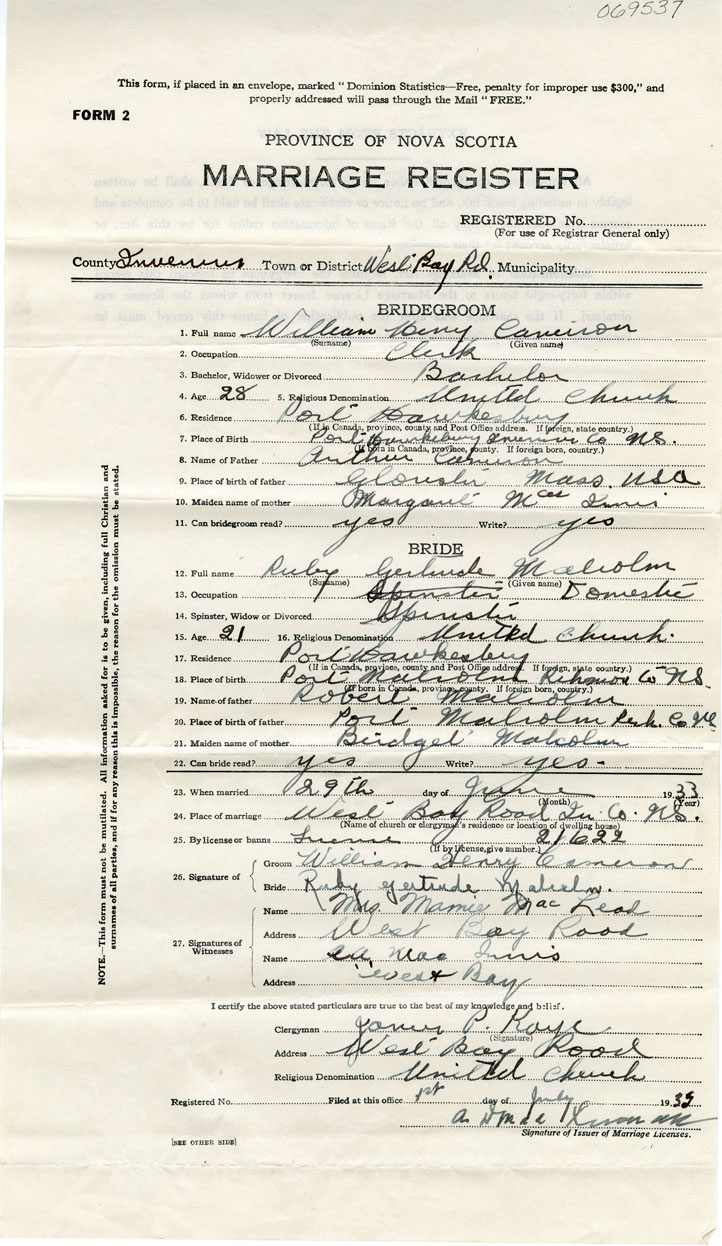 069537
This form, if placed in an envelope, marked "Dominion Statistics—Free, penalty for improper use $300," and
properly addressed will pass through the Mail "FREE."
FORM 2
PROVINCE OF NOVA SCOTIA
MARRIAGE REGISTER
REGISTERED No.
(For use of Registrar General only)
County Inverness Town or District West Bay Rd. Municipality
BRIDEGROOM
1. Full name William Henry Cameron
(Surname) (Given name)
2. Occupation Clerk
3. Bachelor, Widower or Divorced Bachelor
4. Age 28 5. Religious Denomination United Church
6. Residence Port Hawkesbury
(If in Canada, province, county and Post Office address. If foreign, state country.)
7. Place of Birth Port Hawkesbury Inverness Co N.S.
(If born in Canada, province, county. If foreign born, country.)
8. Name of Father Arthur Cameron
9. Place of birth of father Mass. USA
10. Maiden name of mother Margaret Innis
11. Can bridegroom read? yes Write? yes
BRIDE
12. Full name Ruby Gertrude Malcolm
(Surname) (Given name)
13. Occupation Spinster Domestic
14. Spinster, Widow or Divorced Spinster
15. Age 21 16. Religious Denomination United Church.
17. Residence Port Hawkesbury
(If in Canada, province, county and Post Office address. If foreign, state country.)
18. Place of birth Port Malcolm Richmon Co N.S.
(If born in Canada, province, county. If foreign born, country.)
19. Name of father Robert Malcolm
20. Place of birth of father Port Malcolm Rich. Co NS
21. Maiden name of mother Bridget Malcolm
22. Can bride read? yes Write? yes-
23. When married 29th day of June 1933
(Month) (Year)
24. Place of marriage West Bay Road In. Co. N.S.
(Name of church or clergyman's residence or location of dwelling house)
25. By license or banns License 21622
(If by license, give number.)
26. Signature of
Groom William Henry Cameron
Bride Ruby Gertrude Malcolm.
27. Signatures of Witnesses
Name Mrs. Mamie Mac Leod
Address West Bay Road
Name Mac Innis
Address West Bay
I certify the above stated particulars are true to the best of my knowledge and belief.
Clergyman James P. Kaye
(Signature)
Address West Bay Road
Religious Denomination United Church
Registered No. Filed at this office 1st day of July 1933
Signature of Issuer of Marriage Licenses.
[SEE OTHER SIDE]
NOTE.—This form must not be mutilated. All information asked for is to be given, including full Christian and
surnames of all parties, and if for any reason this is impossible, the reason for the omission must be stated.